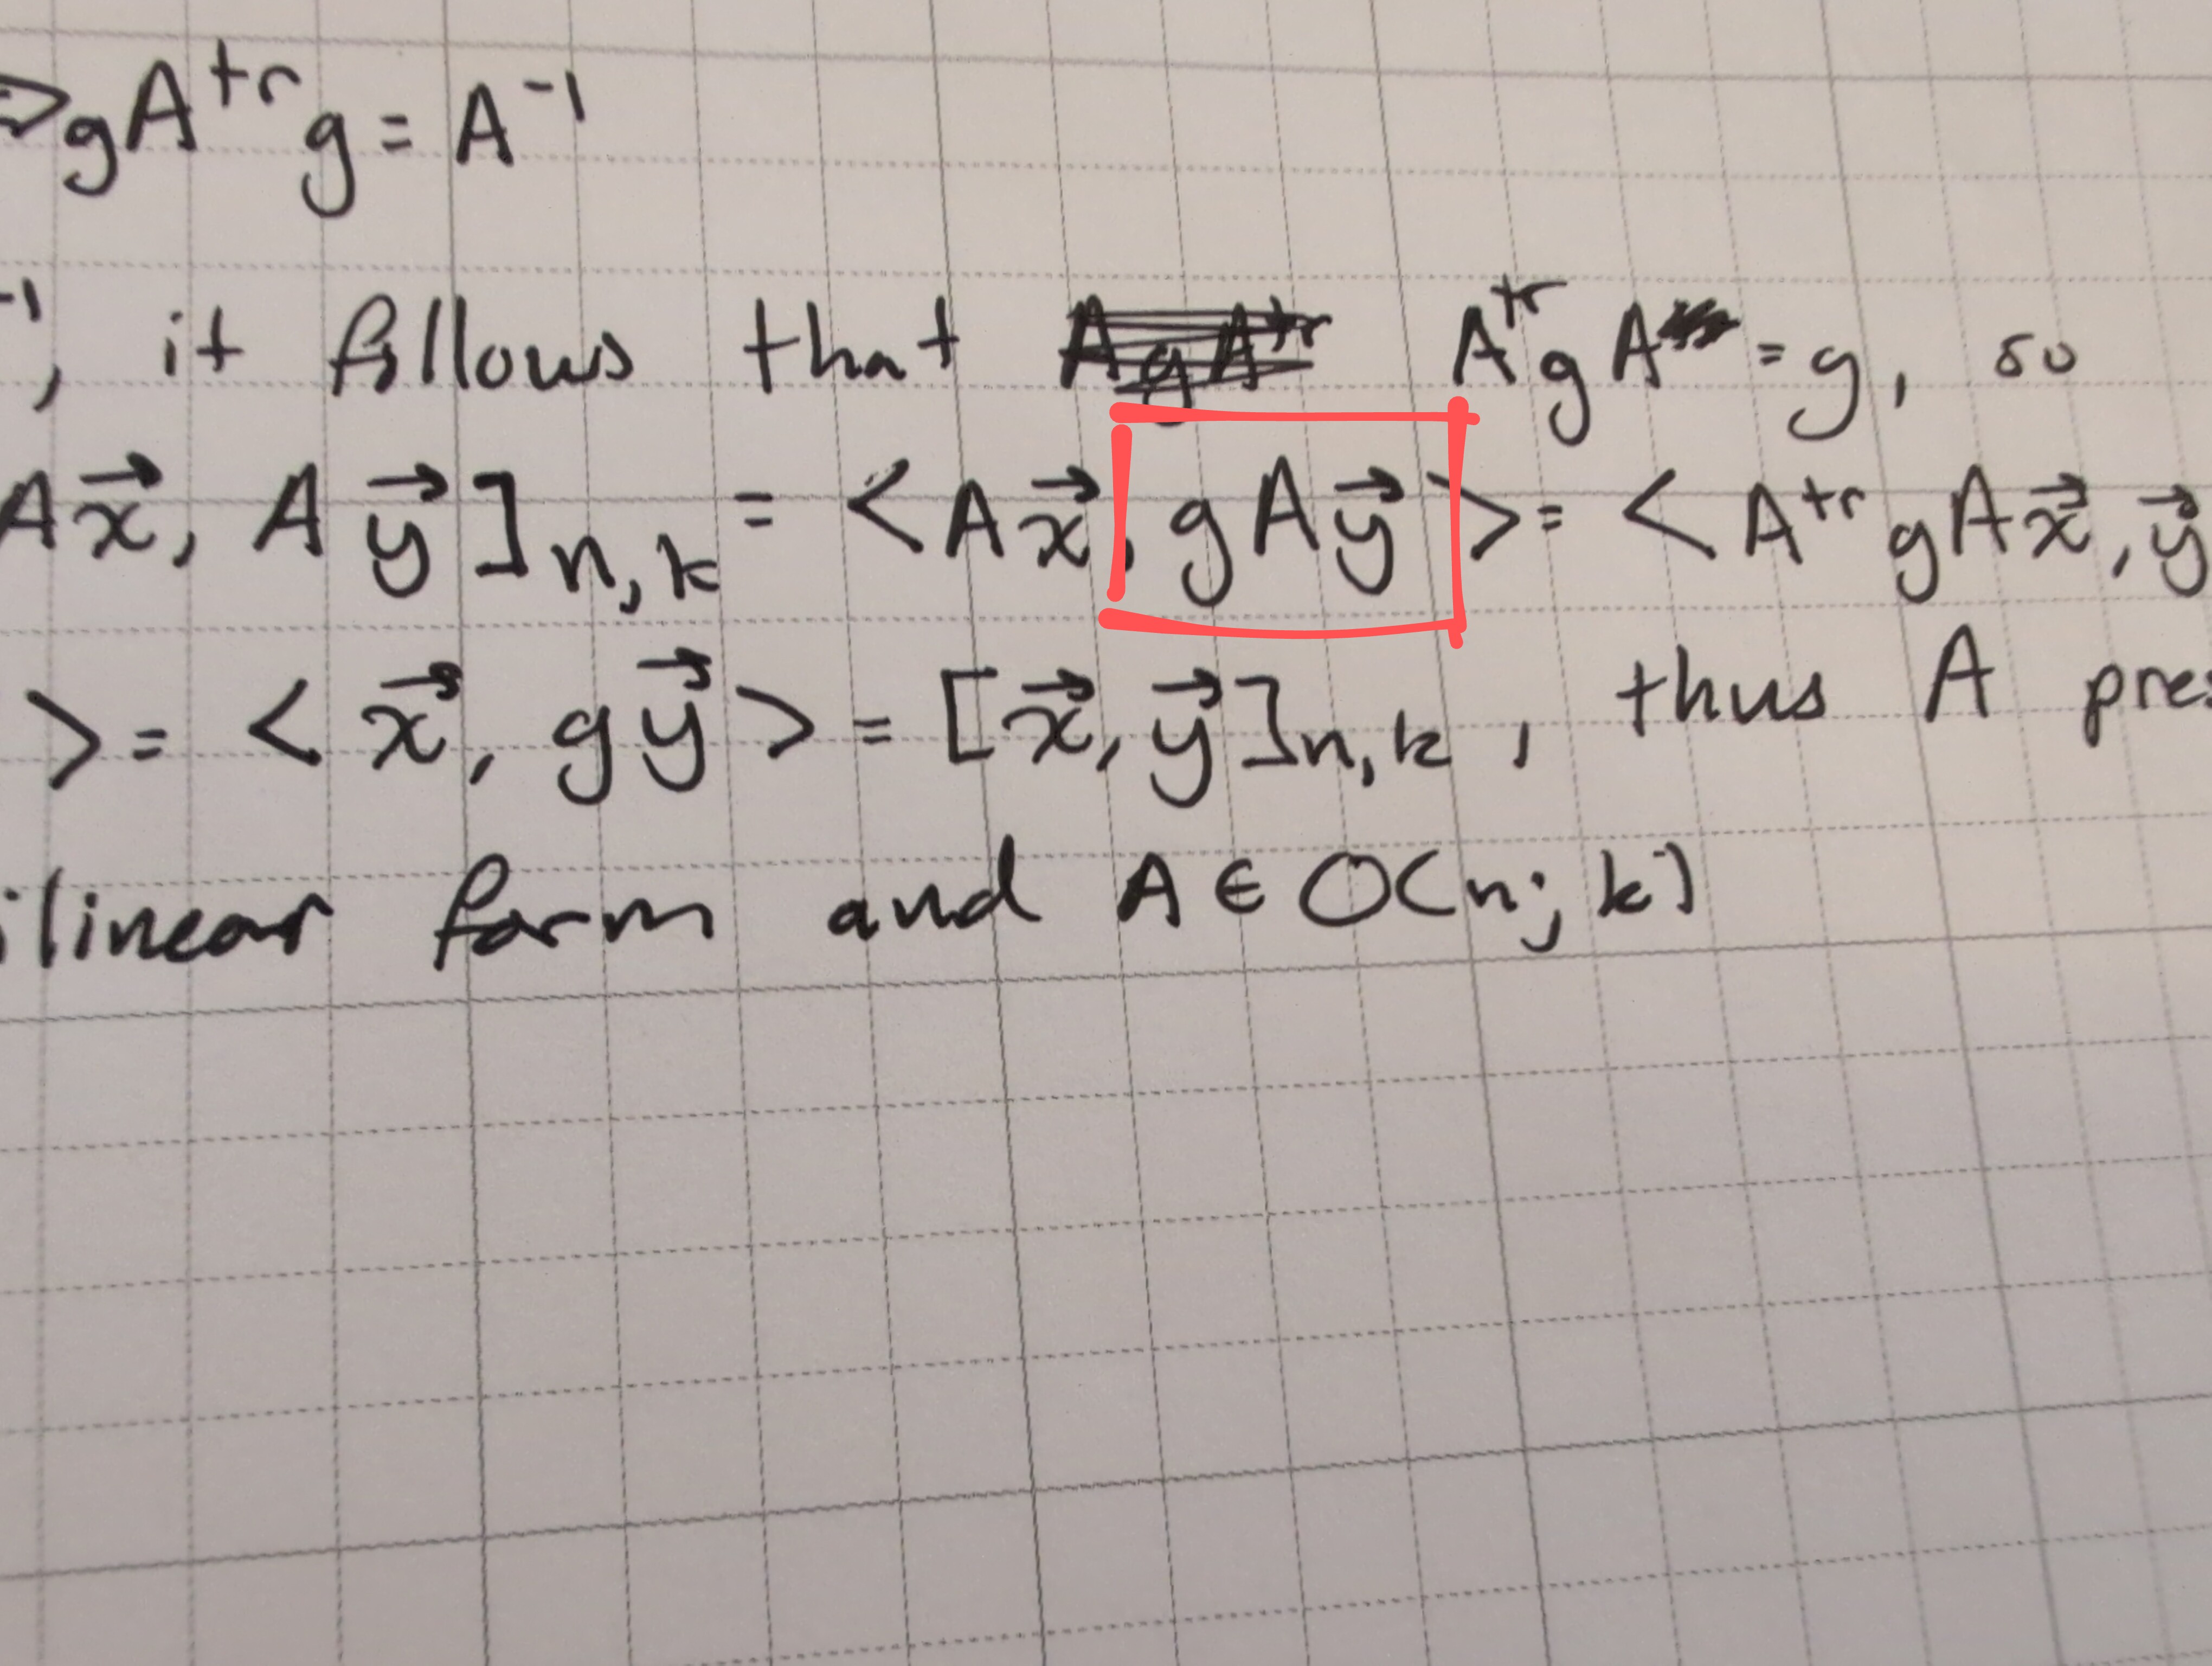 ⇒gA^tr g = A^-1
-1, it follows that A^tr g A = g, so
A\vec{x}, A\vec{y}]_n,k = <A\vec{x}, gA\vec{y}> = <A^tr gA\vec{x}, \vec{y}
> = <\vec{x}, g\vec{y}> = [\vec{x}, \vec{y}]_n,k, thus A pres
ilinear form and A ∈ O(n; k)